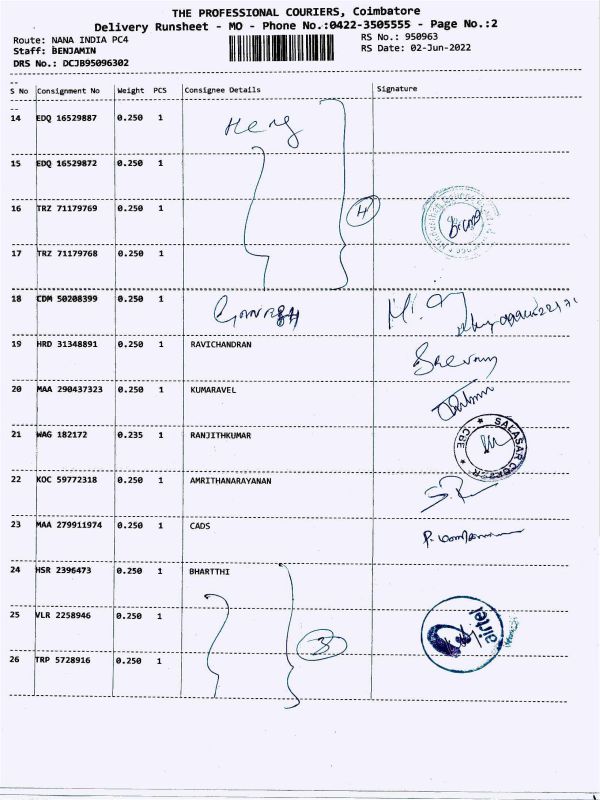 THE PROFESSIONAL COURIERS, Coimbatore
Delivery Runsheet - MO - Phone No.:0422-3505555 - Page No.:2
Route: NANA INDIA PC4 RS No.: 950963
Staff: BENJAMIN RS Date: 02-Jun-2022
DRS No.: DCJB95096302
S No Consignment No Weight PCS Consignee Details Signature
14 EDQ 16529887 0.250 1
15 EDQ 16529872 0.250 1
16 TRZ 71179769 0.250 1 4
17 TRZ 71179768 0.250 1
18 CDM 50208399 0.250 1
19 HRD 31348891 0.250 1 RAVICHANDRAN
20 MAA 290437323 0.250 1 KUMARAVEL
21 WAG 182172 0.235 1 RANJITHKUMAR SALASAR CBE
22 KOC 59772318 0.250 1 AMRITHANARAYANAN
23 MAA 279911974 0.250 1 CADS
24 HSR 2396473 0.250 1 BHARTTHI
25 VLR 2258946 0.250 1 airtel
26 TRP 5728916 0.250 1 3